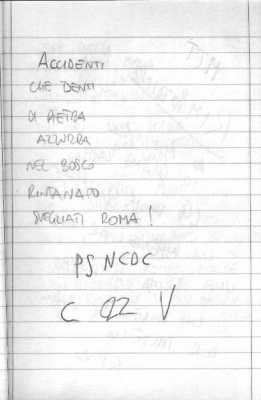 ACCIDENTI
CHE DENTI
DI PIETRA
AZZURRA
NEL BOSCO
RINTANATO
SVEGLIATI ROMA!
PS NCOC
C QZ V